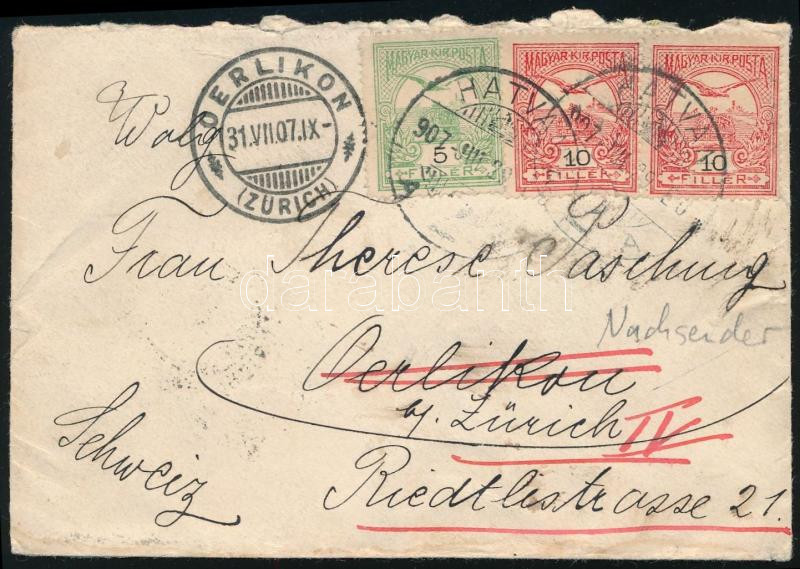 MAGYAR·KIR·POSTA MAGYAR·KIR·POSTA MAGYAR·KIR·POSTA
5 FILLÉR 10 FILLÉR 10 FILLÉR
HATVAN HATVAN
907
OERLIKON
31.VII.07.IX-
(ZÜRICH)
Frau Therese Taschung
darabanth
Nachsender
Oerlikon
b/. Zürich IV
Schweiz
Riedtlistrasse 21.